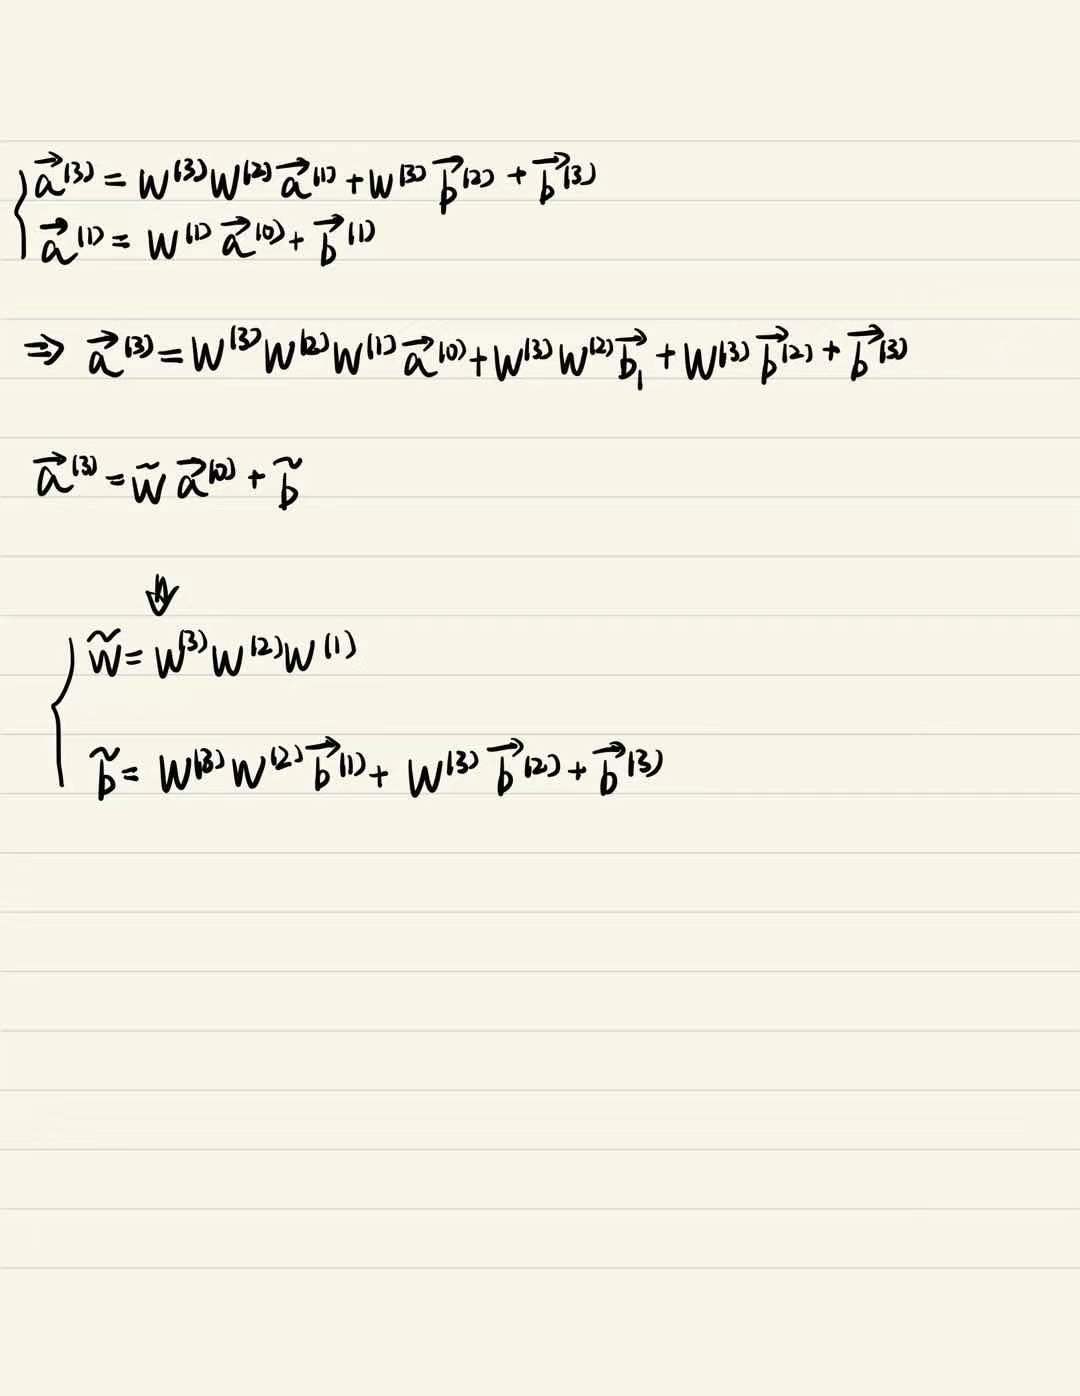 { a⃗⁽³⁾ = W⁽³⁾W⁽²⁾a⃗⁽¹⁾ + W⁽³⁾b⃗⁽²⁾ + b⃗⁽³⁾
a⃗⁽¹⁾ = W⁽¹⁾a⃗⁽⁰⁾ + b⃗⁽¹⁾
⇒ a⃗⁽³⁾ = W⁽³⁾W⁽²⁾W⁽¹⁾a⃗⁽⁰⁾ + W⁽³⁾W⁽²⁾b⃗₁ + W⁽³⁾b⃗⁽²⁾ + b⃗⁽³⁾
a⃗⁽³⁾ = W̃a⃗⁽⁰⁾ + b̃
⇓
{ W̃ = W⁽³⁾W⁽²⁾W⁽¹⁾
b̃ = W⁽³⁾W⁽²⁾b⃗⁽¹⁾ + W⁽³⁾b⃗⁽²⁾ + b⃗⁽³⁾